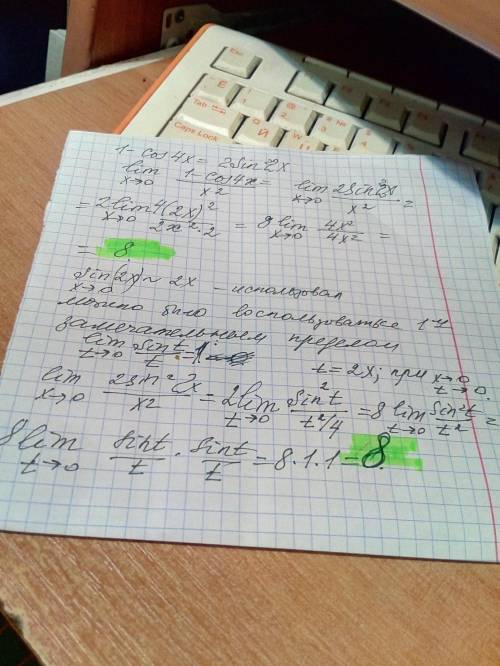 Esc
Tab
Caps Lock
1 - cos4x = 2sin²2x
lim x→0 (1-cos4x)/x² = lim x→0 (2sin²2x)/x² =
= 2 lim x→0 4(2x)²/(2x²·2) = 8 lim x→0 4x²/4x² =
= 8.
sin(2x) ~ 2x - использовал
x→0
можно было воспользоваться 1-ы
замечательным пределом
lim t→0 sint/t = 1
t = 2x; при x→0 t→0.
lim x→0 (2sin²2x)/x² = 2 lim t→0 (sin²t)/(t²/4) = 8 lim t→0 (sin²t)/t² =
8 lim t→0 sint/t · sint/t = 8·1·1 = 8.